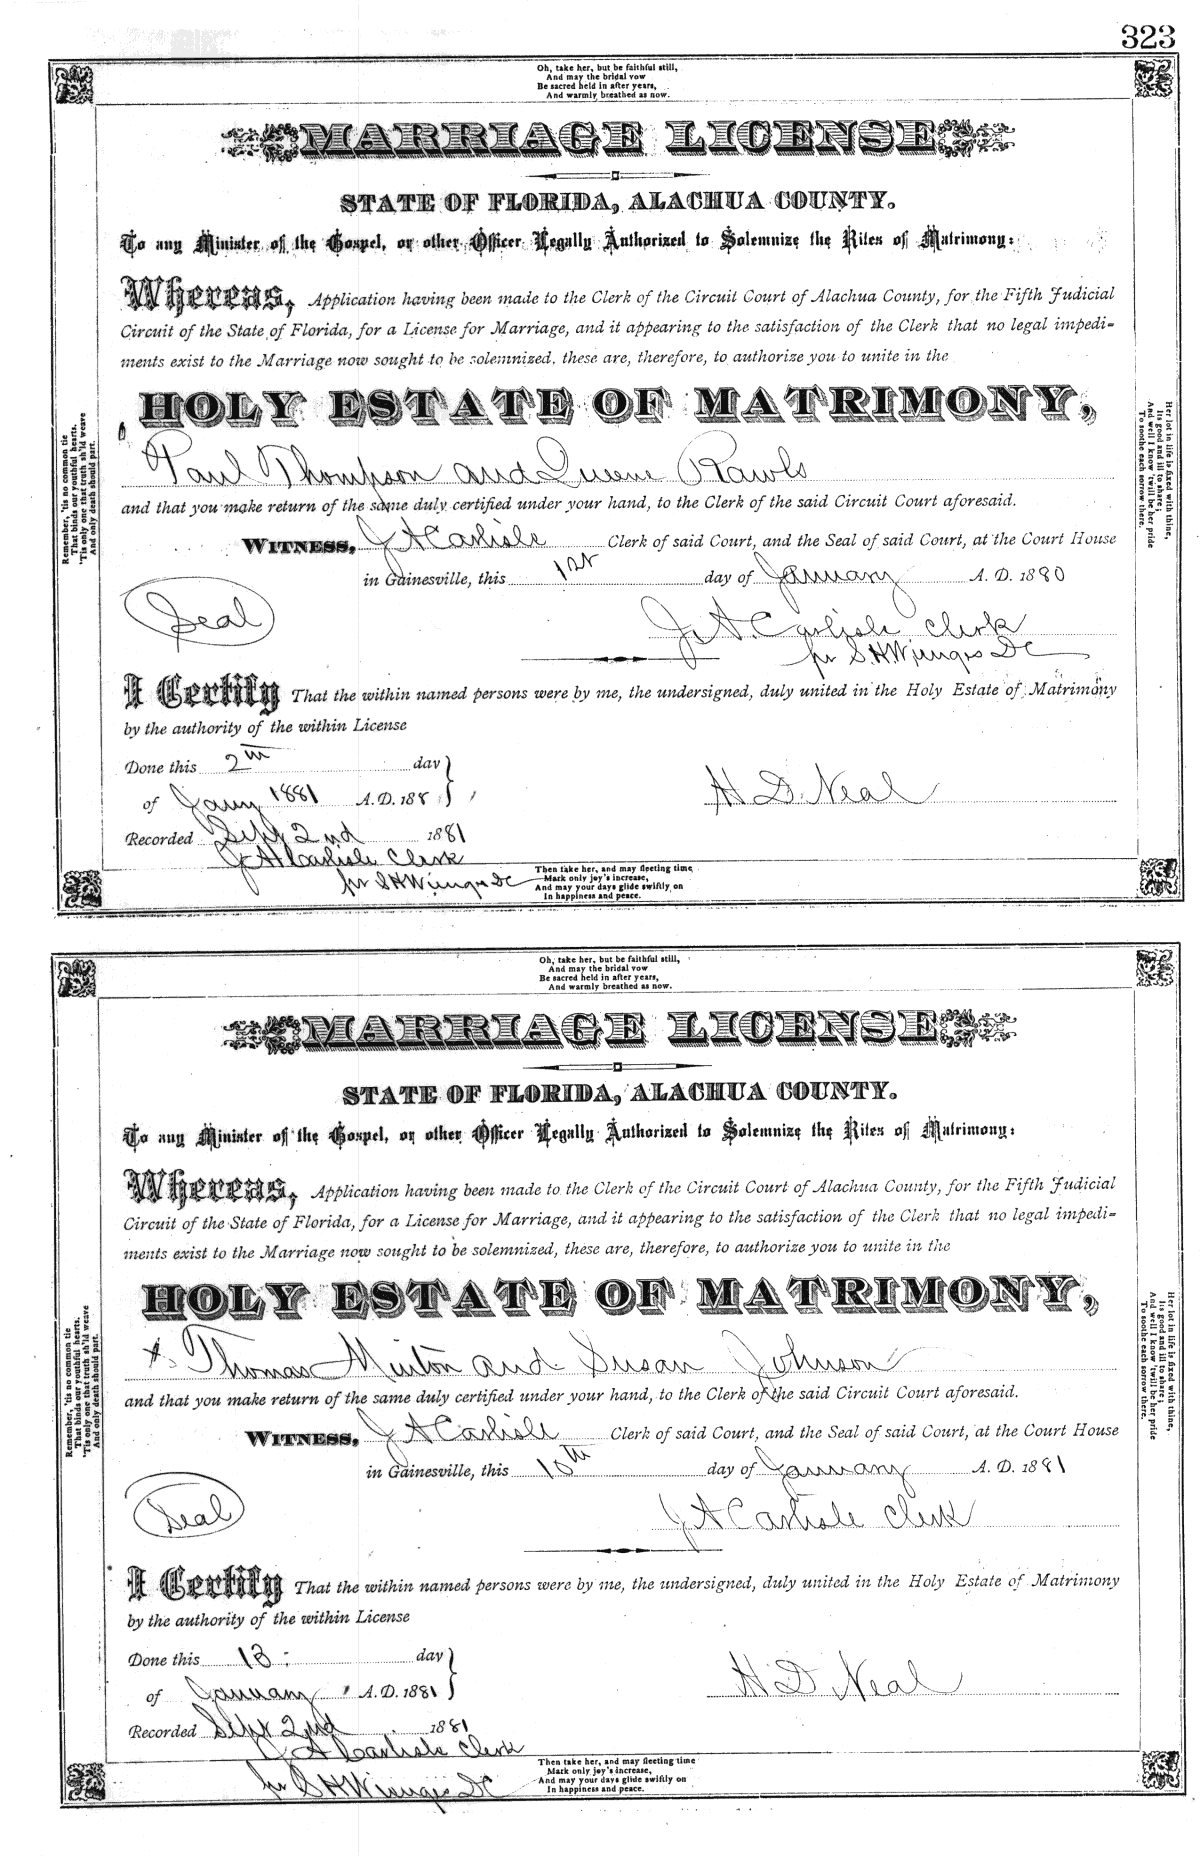 323
Oh, take her, but be faithful still,
And may the bridal vow
Be sacred held in after years,
And warmly breathed as now.
MARRIAGE LICENSE
STATE OF FLORIDA, ALACHUA COUNTY.
To any Minister of the Gospel, or other Officer Legally Authorized to Solemnize the Rites of Matrimony:
Whereas, Application having been made to the Clerk of the Circuit Court of Alachua County, for the Fifth Judicial
Circuit of the State of Florida, for a License for Marriage, and it appearing to the satisfaction of the Clerk that no legal impedi-
ments exist to the Marriage now sought to be solemnized, these are, therefore, to authorize you to unite in the
HOLY ESTATE OF MATRIMONY,
Paul Thompson and Queene Rawls
and that you make return of the same duly certified under your hand, to the Clerk of the said Circuit Court aforesaid.
WITNESS, J A Carlisle Clerk of said Court, and the Seal of said Court, at the Court House
in Gainesville, this 1st day of January A. D. 1880
Seal
J. A. Carlisle Clerk
pr S. H. Wienges DC
I Certify That the within named persons were by me, the undersigned, duly united in the Holy Estate of Matrimony
by the authority of the within License
Done this 2th day
of Jany 1881 A. D. 188
H D. Neal
Recorded Sept 2nd 1881
J A Carlisle Clerk
pr S H Wienges DC
Then take her, and may fleeting time
Mark only joy's increase,
And may your days glide swiftly on
In happiness and peace.
Remember, 'tis no common tie
That binds our youthful hearts,
'Tis only one that truth sh'ld weave
And only death should part.
Her lot in life is fixed with thine,
Its good and ill to share;
And well I know 'twill be her pride
To soothe each sorrow there.
Oh, take her, but be faithful still,
And may the bridal vow
Be sacred held in after years,
And warmly breathed as now.
MARRIAGE LICENSE
STATE OF FLORIDA, ALACHUA COUNTY.
To any Minister of the Gospel, or other Officer Legally Authorized to Solemnize the Rites of Matrimony:
Whereas, Application having been made to the Clerk of the Circuit Court of Alachua County, for the Fifth Judicial
Circuit of the State of Florida, for a License for Marriage, and it appearing to the satisfaction of the Clerk that no legal impedi-
ments exist to the Marriage now sought to be solemnized, these are, therefore, to authorize you to unite in the
HOLY ESTATE OF MATRIMONY,
Thomas Minton and Susan Johnson
and that you make return of the same duly certified under your hand, to the Clerk of the said Circuit Court aforesaid.
WITNESS, J A Carlisle Clerk of said Court, and the Seal of said Court, at the Court House
in Gainesville, this 10th day of January A. D. 1881
Seal
J A Carlisle Clerk
I Certify That the within named persons were by me, the undersigned, duly united in the Holy Estate of Matrimony
by the authority of the within License
Done this 13 day
of January A. D. 1881
H D Neal
Recorded Sept 2nd 1881
J A Carlisle Clerk
pr S H Wienges DC
Then take her, and may fleeting time
Mark only joy's increase,
And may your days glide swiftly on
In happiness and peace.
Remember, 'tis no common tie
That binds our youthful hearts,
'Tis only one that truth sh'ld weave
And only death should part.
Her lot in life is fixed with thine,
Its good and ill to share;
And well I know 'twill be her pride
To soothe each sorrow there.